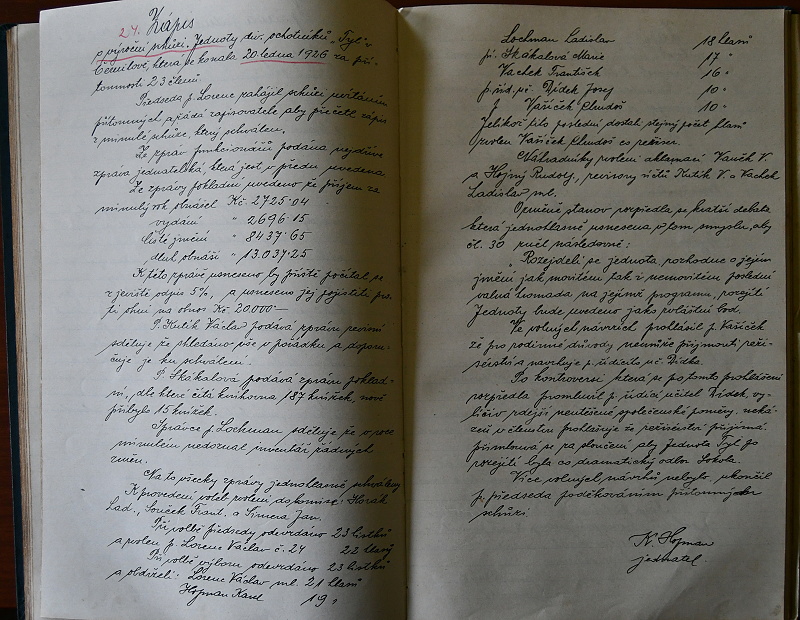 24. Zápis
o výroční schůzi Jednoty div. ochotníků "Tyl" v
Černilově, která se konala 20 ledna 1926 za pří-
tomnosti 23 členů.
Předseda p. Lorenc zahájil schůzi uvítáním
přítomných a žádá zapisovatele aby přečetl zápis
z minulé schůze, který schválen.
Ze zpráv funkcionářů podána nejdříve
zpráva jednatelská, která jest v předu uvedena.
Ze zprávy pokladní uvedeno že příjem za
minulý rok obnášel Kč 2725·04
vydání " 2696·15
čisté jmění " 8437·65
dluh obnáší " 13.037·25
K této zprávě usneseno by příště počítal se
z jeviště odpis 5%, a usneseno jej pojistiti pro-
ti ohni na obnos Kč 20.000·—
P. Kutík Václav podává zprávu revisní
sděluje že shledáno vše v pořádku a doporu-
čuje je ku schválení.
P. Skákalová podává zprávu
dle které čítá knihovna 187 knížek, nově
přibylo 15 knížek.
Správce p. Lochman sděluje že v roce
minulém nedoznal inventář žádných
změn.
Na to všecky zprávy jednohlasně schváleny
K provedení voleb zvoleni do komise: Horák
Lad., Souček Frant. a Šimera Jan.
Při volbě předsedy odevzdáno 23 lístků
a zvolen p. Lorenc Václav č. 24 22 hlasy
Při volbě výboru odevzdáno 23 lístků
a obdrželi: Lorenc Václav ml. 21 hlasů
Hofman Karel 19 "
Lochman Ladislav 18 hlasů
pí. Skákalová Marie 17 "
Vachek František 16 "
p. říd. uč. Dídek Josef 10 "
p. Vašíček Chudoš 10 "
Jelikož tito poslední dostali stejný počet hlasů
zvolen Vašíček Chudoš co režiser.
Náhradníky zvoleni aklamací Vaněk V.
a Hojný Rudolf, revisory účtů Kutík V. a Vachek
Ladislav ml.
Ohledně stanov rozpředla se kratší debata
která jednohlasně usnesena v tom smyslu, aby
čl. 30 zněl následovně:
"Rozejde-li se jednota, rozhodne o jejím
jmění jak movitém tak i nemovitém poslední
valná hromada na jejímž programu, rozejití
Jednoty bude uvedeno jako zvláštní bod.
Ve volných návrzích prohlásil p. Vašíček
že pro rodinné důvody nemůže přijmouti reži-
sérství a navrhuje p. řídícího uč. Dídka.
Po kontroversi která se po tomto prohlášení
rozpředla promluvil p. řídící učitel Dídek, vy-
líčiv zdejší neutěšené společenské poměry, neká-
zeň v členstvu prohlašuje že režisérství přijímá.
Přimlouvá se za sloučení aby Jednota Tyl po
rozejití byla co dramatický odbor Sokola.
Více volných návrhů nebylo, ukončil
p. předseda poděkováním přítomným
schůzi.
K. Hofman
jednatel.